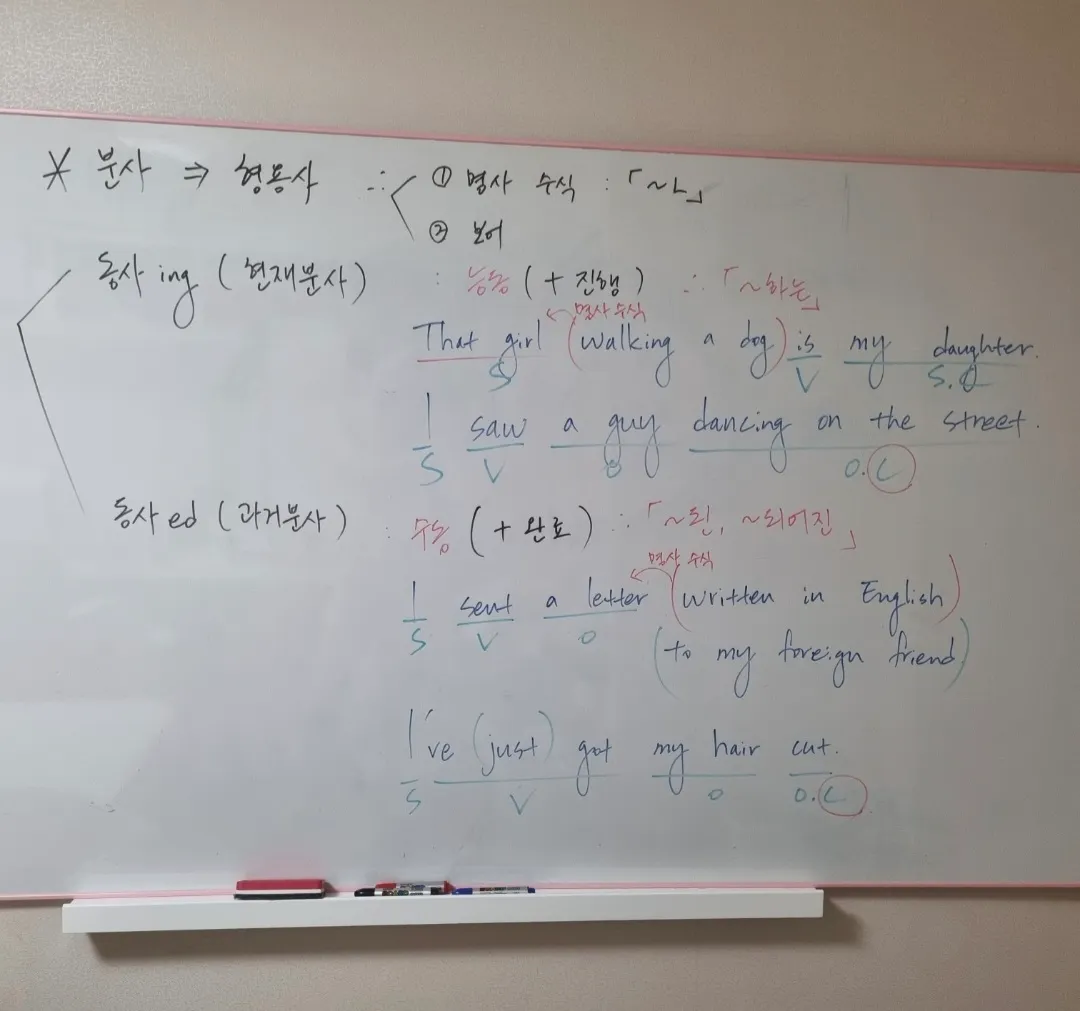 * 분사 ⇒ 형용사 ∴ ① 명사 수식 : 「~ㄴ」
② 보어
동사 ing (현재분사) : 능동 (+ 진행) ∴ 「~하는」
명사 수식
That girl (walking a dog) is my daughter.
S V S.C
I saw a guy dancing on the street.
S V O O.C
동사 ed (과거분사) : 수동 (+ 완료) ∴ 「~된, ~되어진」
명사 수식
I sent a letter (written in English)
S V O
(to my foreign friend)
I've (just) got my hair cut.
S V O O.C